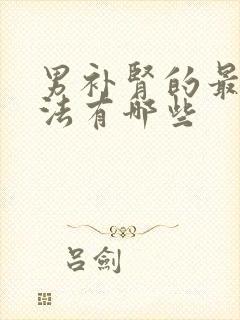 男补肾的最
法有哪些
吕劍